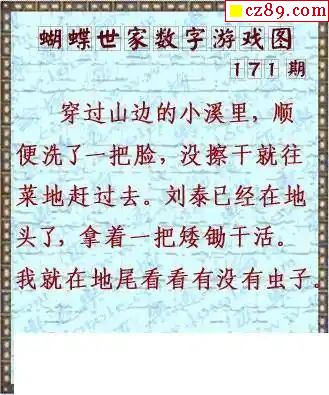 cz89.com
蝴蝶世家数字游戏图
171期
穿过山边的小溪里，顺
便洗了一把脸，没擦干就往
菜地赶过去。刘泰已经在地
头了，拿着一把矮锄干活。
我就在地尾看看有没有虫子。